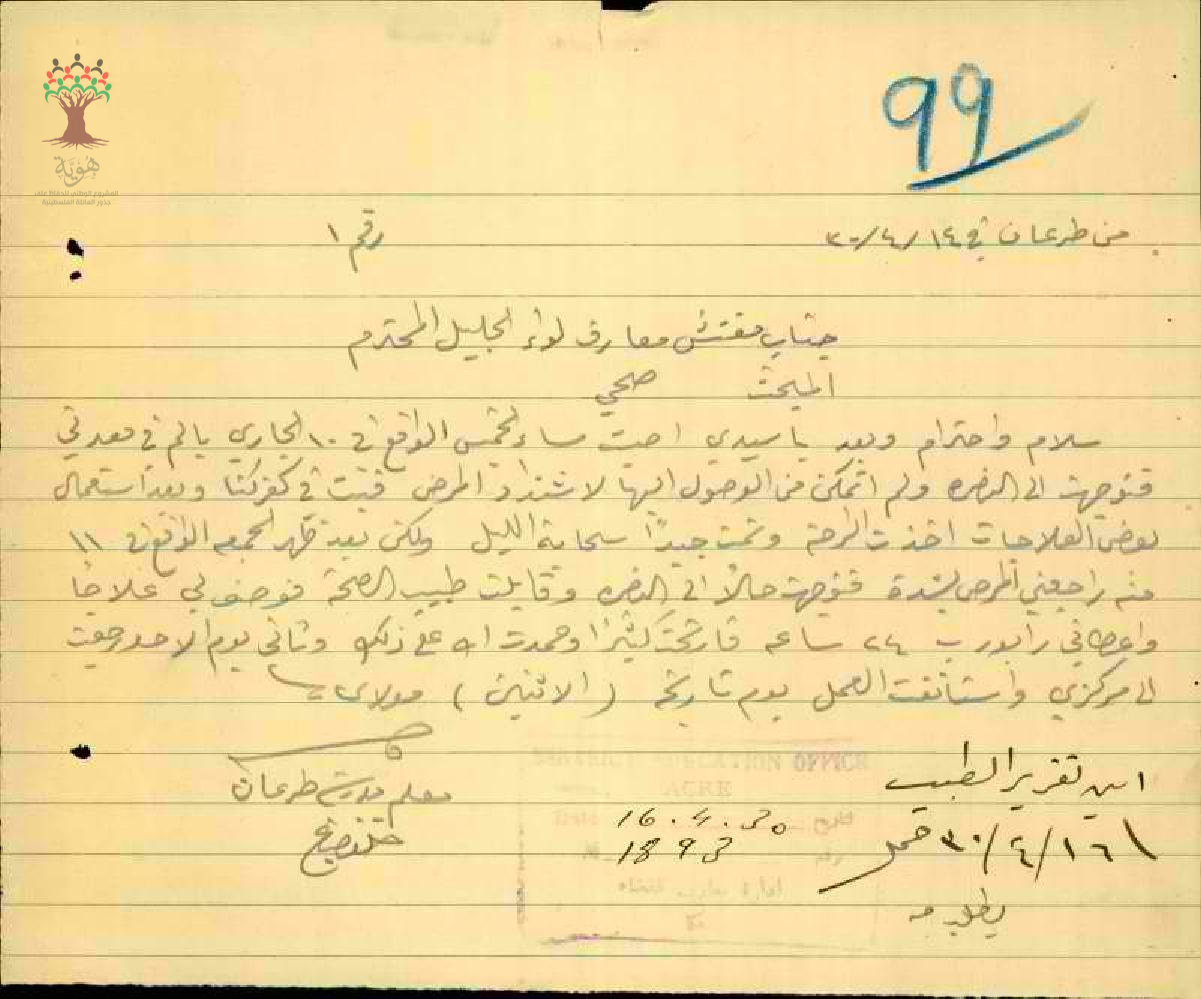 99
هوية
المشروع الوطني للحفاظ على
جذور العائلة الفلسطينية
من طرعان في ١٤/٤/٣٠
رقم ١
جناب مفتش معارف لواء الجليل المحترم
المبحث صحي
سلام واحترام وبعد يا سيدي اصبت مساء الخميس الواقع في ١٠ الجاري بالم في معدتي
فتوجهت الى الناصره ولم اتمكن من الوصول اليها لاشتداد المرض فبت في كفركنا وبعد استعمال
بعض العلاجات اخذت الراحة ونمت جيدًا سحابة الليل ولكن بعد ظهر الجمعه الواقع في ١١
منه راجعني المرض بشدة فتوجهت حالًا الى الناصره وقابلت طبيب الصحة فوصف لي علاجًا
واعطاني رابورب ٢٤ ساعه فارتحت كثيرًا وحمدت الله على ذلك وثاني يوم الاحد رجعت
الى مركزي واستأنفت العمل يوم تاريخه (الاثنين) مولاي
معلم مدرسة طرعان
DISTRICT EDUCATION OFFICE
ACRE
تاريخ 16.4.30 Date
رقم 1893 No.
اين تقرير الطبيب
١٦/٤/٣٠
يطلب منه